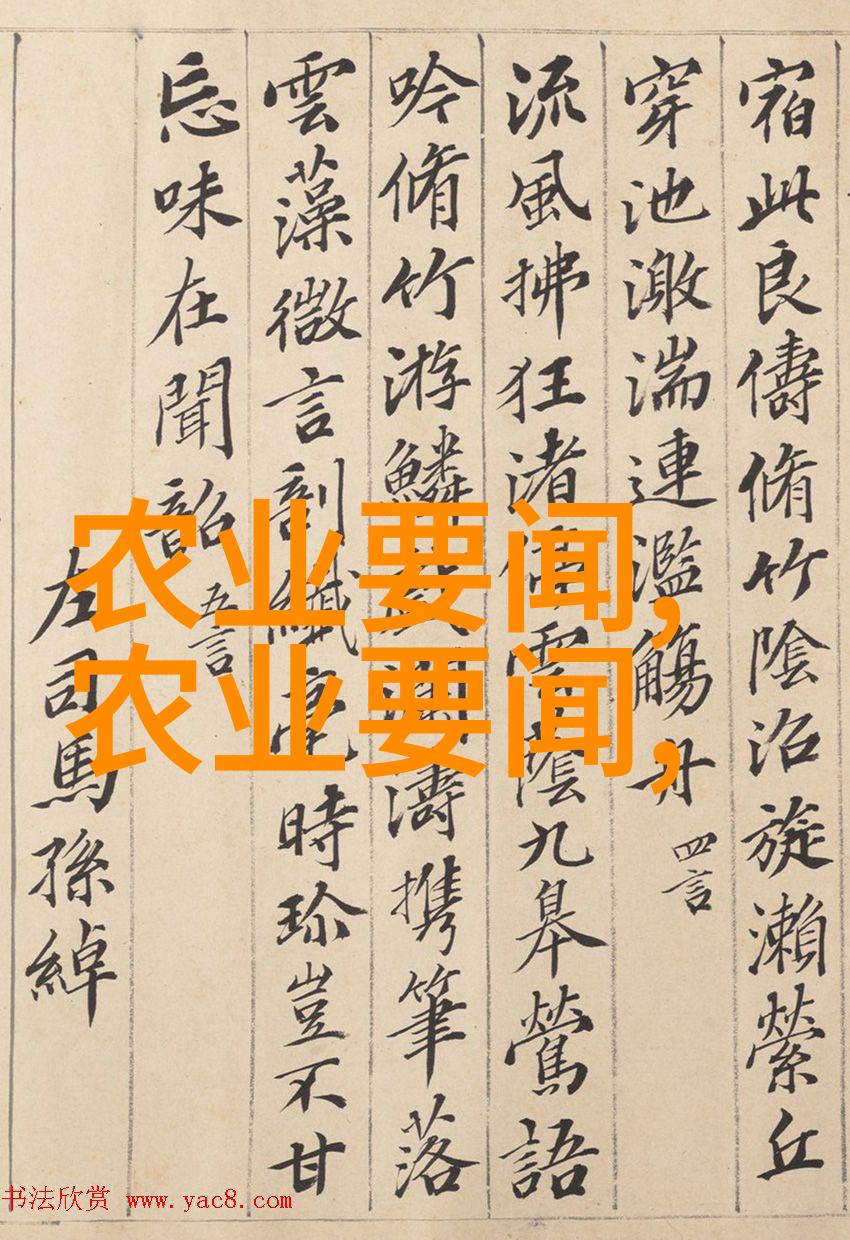 宿此良儔脩竹陰沼旋瀨縈丘
穿池激湍連濫觴舟 四言
流風拂狂渚停雲蔭九皋鶯語
吟脩竹游鱗戲瀾濤携筆落
雲藻微言剖纖毫時珍豈不甘
忘味在聞韶 五言
左司馬孫綽
农业要闻,
农业要闻,
书法欣赏 www.yac8.com